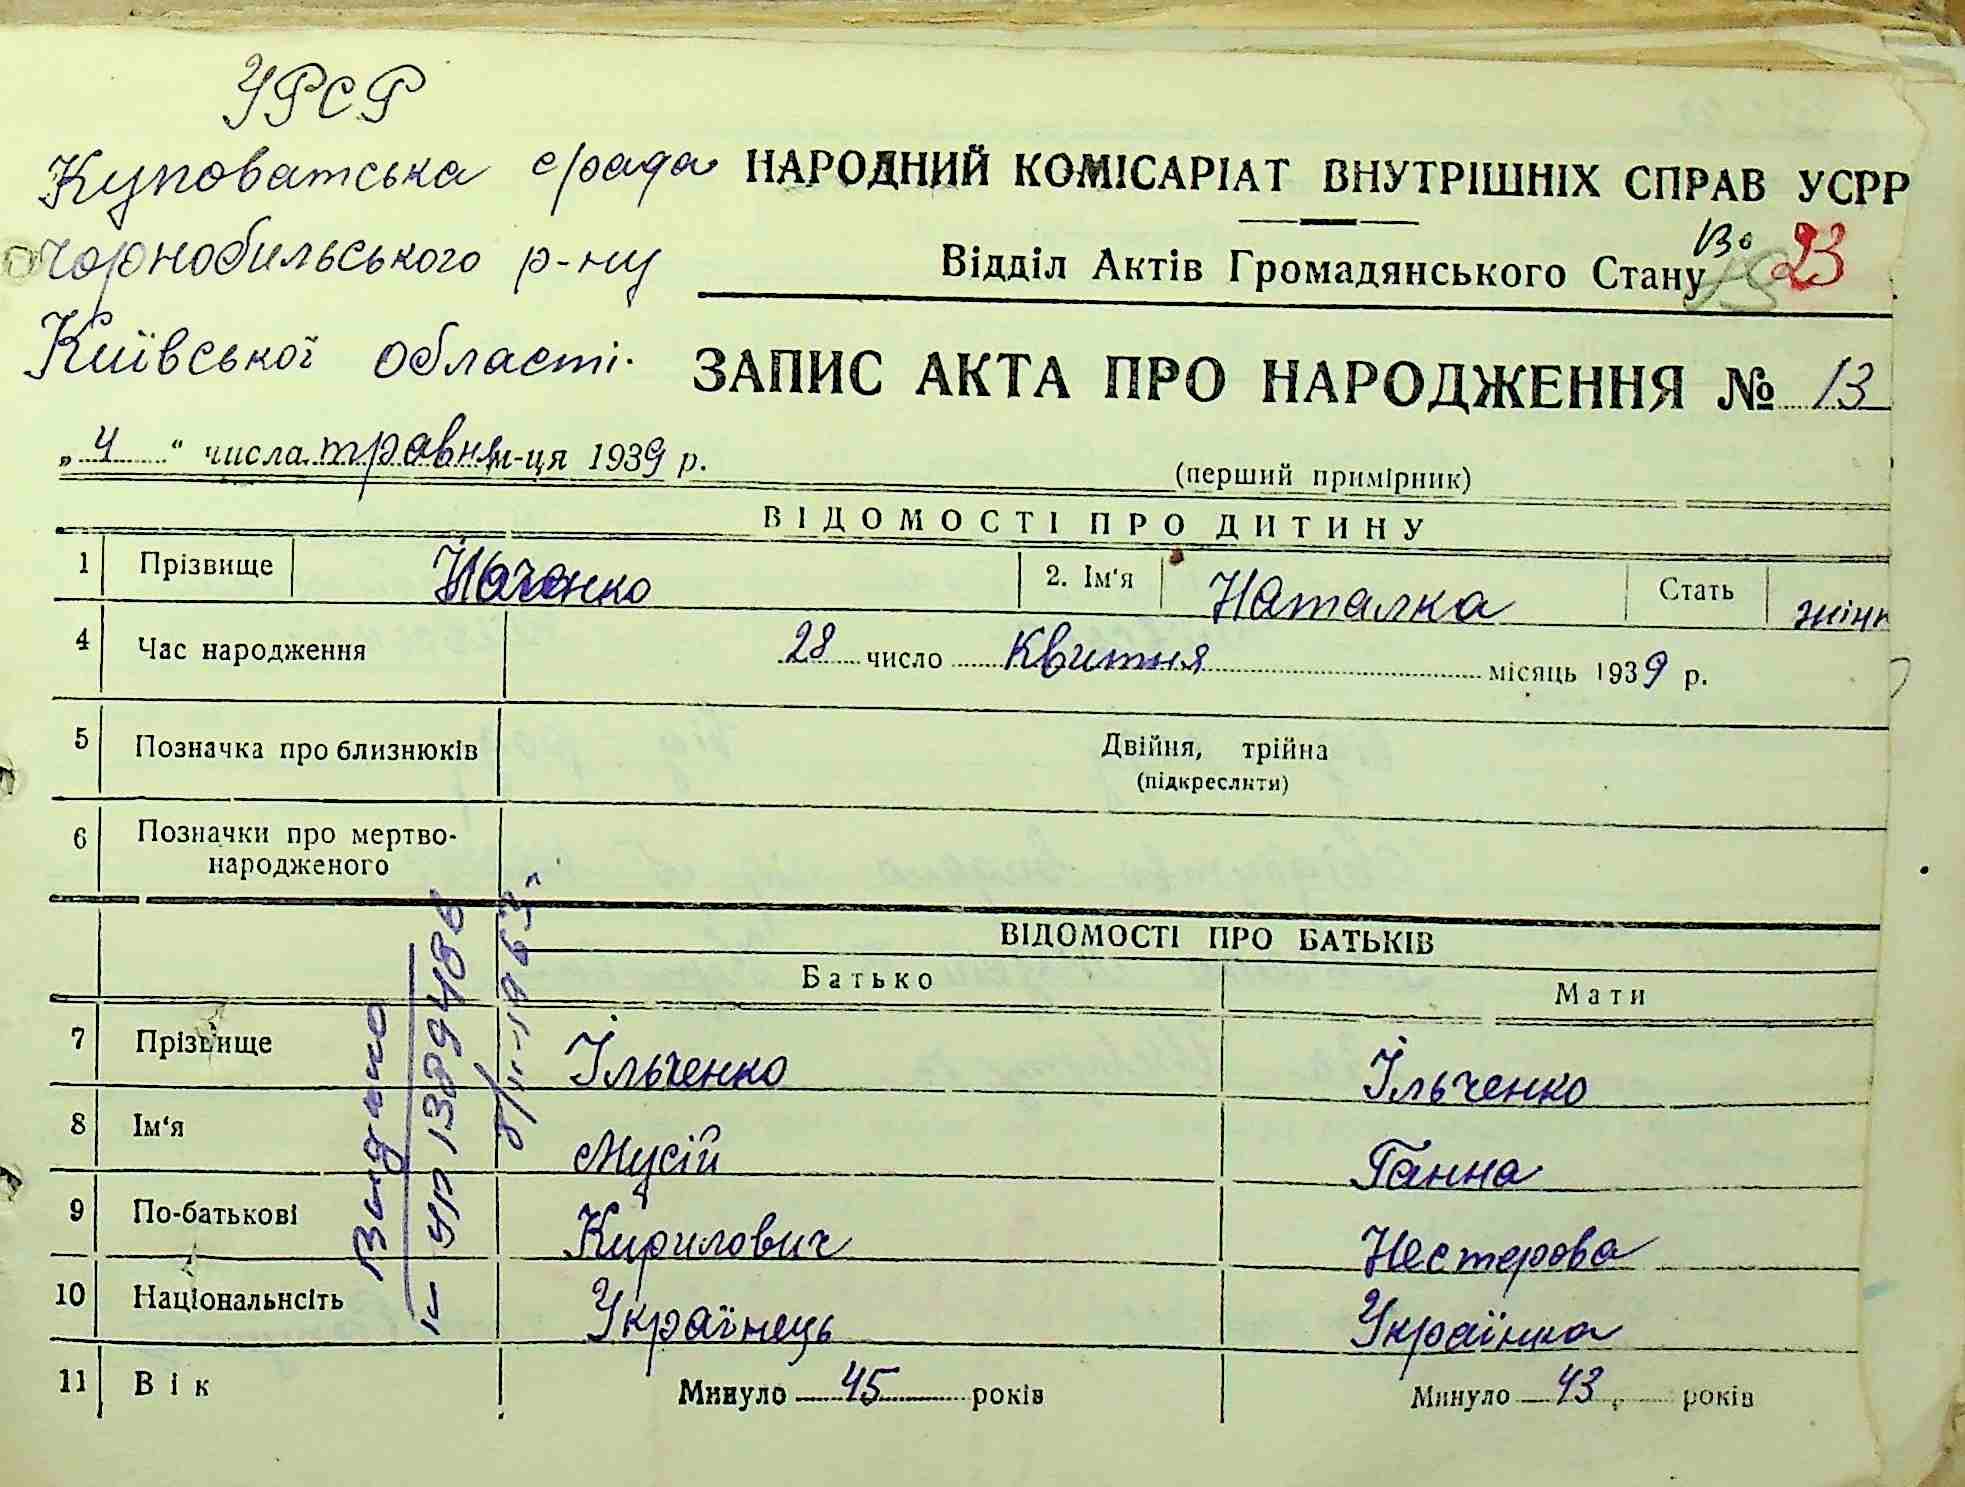 УРСР
Куповатська с/рада
Чорнобильського р-ну
Київської області.
НАРОДНИЙ КОМІСАРІАТ ВНУТРІШНІХ СПРАВ УСРР
Відділ Актів Громадянського Стану
23
ЗАПИС АКТА ПРО НАРОДЖЕННЯ № 13
„4“ числа травня м-ця 1939 р.
(перший примірник)
ВІДОМОСТІ ПРО ДИТИНУ
1 Прізвище 2. Ім'я Наталка Стать жінк
4 Час народження 28 число Квітня місяць 1939 р.
5 Позначка про близнюків Двійня, трійна
(підкреслити)
6 Позначки про мертво-
народженого
ВІДОМОСТІ ПРО БАТЬКІВ
Батько Мати
7 Прізвище Ільченко Ільченко
8 Ім'я Мусій Ганна
9 По-батькові Кирилович Нестерова
10 Національнсіть Українець Українка
11 Вік Минуло 45 років Минуло 43 років
Видано
УР 1389486